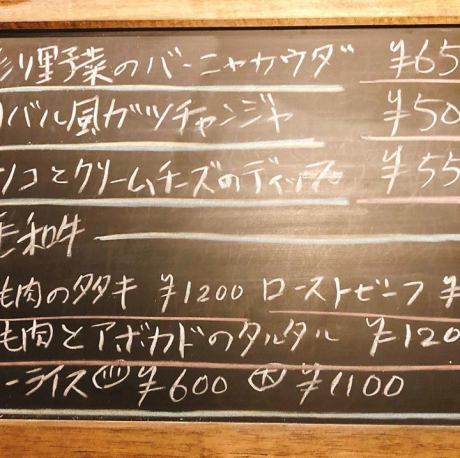 彩り野菜のバーニャカウダ ¥65
バル風ガツチャンジャ ¥50
ンコとクリームチーズのディップ ¥55
毛和牛
も肉のタタキ ¥1200 ローストビーフ ¥
も肉とアボカドのタルタル ¥120
ーライス ㊙小 ¥600 大 ¥1100